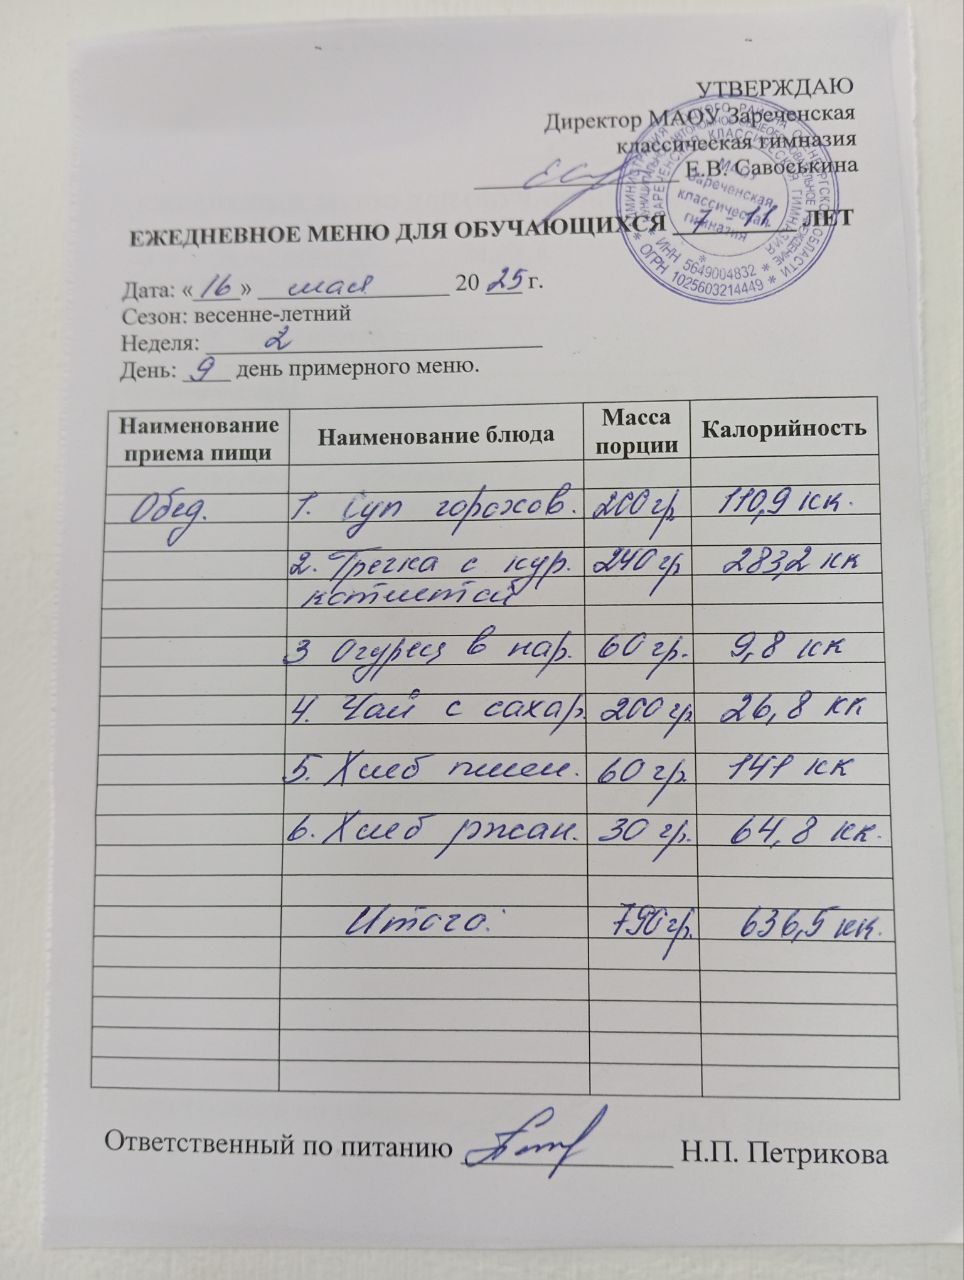 УТВЕРЖДАЮ
Директор МАОУ Зареченская
классическая гимназия
Е.В. Савоськина
ЕЖЕДНЕВНОЕ МЕНЮ ДЛЯ ОБУЧАЮЩИХСЯ 7 - 11 ЛЕТ
МАОУ
Зареченская
классическая
гимназия
* ИНН 5649004832 *
* ОГРН 1025603214449 *
Дата: «16» мая 2025 г.
Сезон: весенне-летний
Неделя: 2
День: 9 день примерного меню.
Наименование приема пищи Наименование блюда Масса порции Калорийность
Обед. 1. Суп горохов. 200 гр 110,9 кк.
2. Гречка с кур. 240 гр 283,2 кк
котлетой
3 Огурец в нар. 60 гр. 9,8 кк
4. Чай с сахар. 200 гр 26,8 кк
5. Хлеб пшен. 60 гр. 141 кк
6. Хлеб ржан. 30 гр. 64,8 кк.
Итого: 790 гр. 636,5 кк.
Ответственный по питанию Н.П. Петрикова